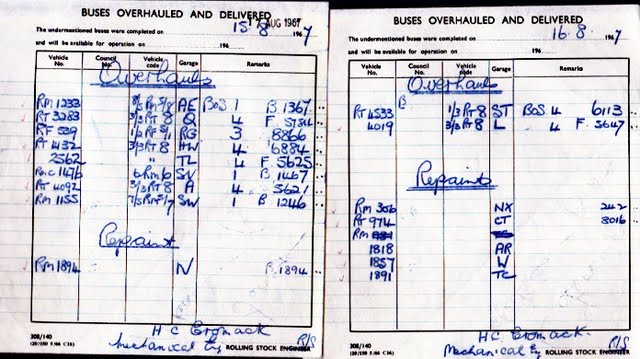 BUSES OVERHAULED AND DELIVERED
17 AUG 1967
The undermentioned buses were completed on 15.8 1967
and will be available for operation on 196
Vehicle No. Council No. Vehicle code Garage Remarks
Overhauls
RM 1233 AE BoS 1 B 1367
RT 3283 3/3 RT 8 Q 4 F. 5784
RF 539 RG 3 8866
RT 4432 3/3 RT 8 HW 4 6884
2562 " TL 4 F. 5625
RMC 1476 6 RM 6 SV 1 B 1467
RT 4092 3/3 RT 8 A 4 5621
RM 1155 SW 1 B 1246
Repaint
RM 1894 N B 1894
H C Cromack
Mechanical Eng ROLLING STOCK ENGINEER R/S
308/140
BUSES OVERHAULED AND DELIVERED
The undermentioned buses were completed on 16.8 1967
and will be available for operation on 196
Vehicle No. Council No. Vehicle code Garage Remarks
Overhauls
B
RT 4533 1/3 RT 8 ST BoS 4 6113
4019 3/3 RT 8 L 4 F. 5647
Repaints
RM 306 NX 242
RT 974 CT 8016
RM
1818 AR
1857 W
1891 TC
H.C. Cromack
Mechanical Eng ROLLING STOCK ENGINEER R/S
308/140